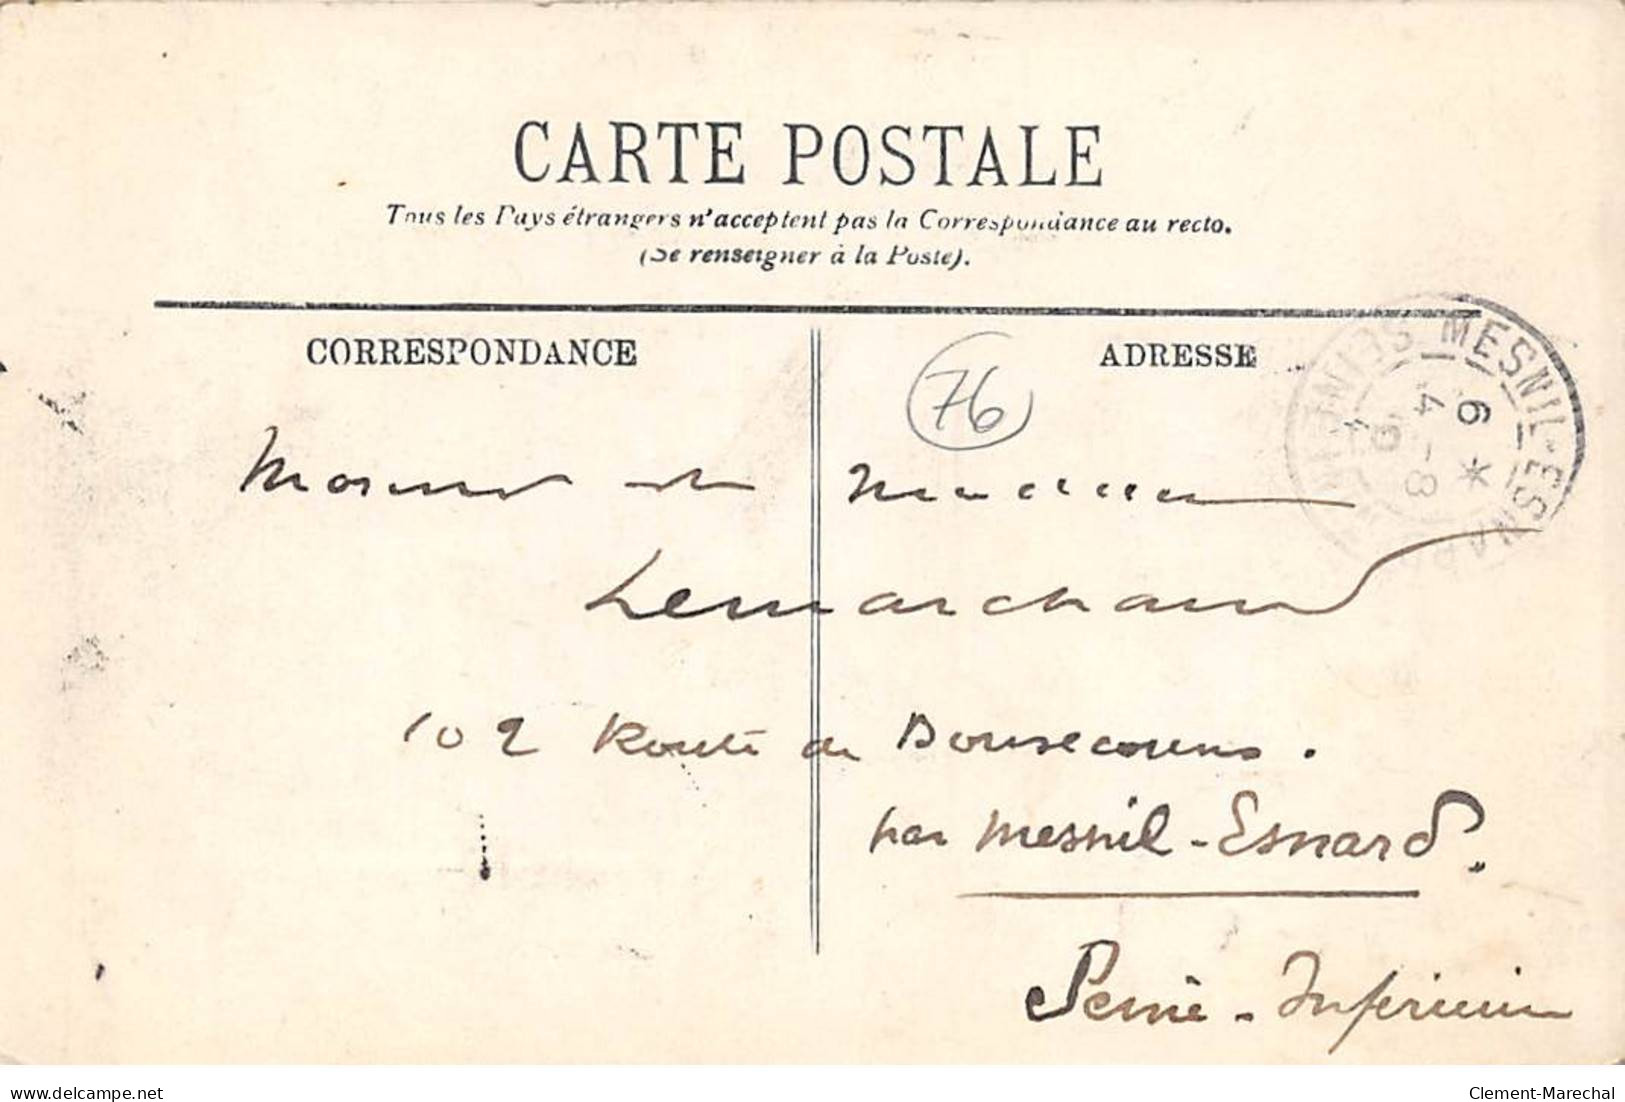 CARTE POSTALE
Tous les Pays étrangers n'acceptent pas la Correspondance au recto.
(Se renseigner à la Poste).
CORRESPONDANCE
ADRESSE
76
MESNIL-ESNARD
6 *
4 - 8
Monsieur et Madame
Lemarchand
102 Route de Bonsecours.
par Mesnil-Esnard.
Seine-Inférieure
delcampe.net
Clement-Marechal